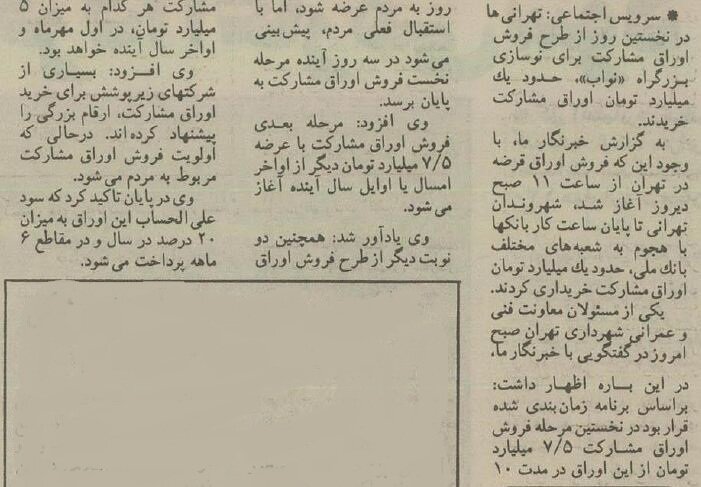 * سرویس اجتماعی: تهرانی‌ها
در نخستین روز از طرح فروش
اوراق مشارکت برای نوسازی
بزرگراه «نواب»، حدود یك
میلیارد تومان اوراق مشارکت
خریدند.
به گزارش خبرنگار ما، با
وجود این که فروش اوراق قرضه
در تهران از ساعت ۱۱ صبح
دیروز آغاز شد، شهروندان
تهرانی تا پایان ساعت کار بانکها
با هجوم به شعبه‌های مختلف
بانك ملی، حدود یك میلیارد تومان
اوراق مشارکت خریداری کردند.
یکی از مسئولان معاونت فنی
و عمرانی شهرداری تهران صبح
امروز در گفتگویی با خبرنگار ما،
در این باره اظهار داشت:
براساس برنامه زمان‌بندی شده
قرار بود در نخستین مرحله فروش
اوراق مشارکت ۷/۵ میلیارد
تومان از این اوراق در مدت ۱۰
روز به مردم عرضه شود، اما با
استقبال فعلی مردم، پیش‌بینی
می‌شود در سه روز آینده مرحله
نخست فروش اوراق مشارکت به
پایان برسد.
وی افزود: مرحله بعدی
فروش اوراق مشارکت با عرضه
۷/۵ میلیارد تومان دیگر از اواخر
امسال یا اوایل سال آینده آغاز
می‌شود.
وی یادآور شد: همچنین دو
نوبت دیگر از طرح فروش اوراق
مشارکت هر کدام به میزان ۵
میلیارد تومان، در اول مهرماه و
اواخر سال آینده خواهد بود.
وی افزود: بسیاری از
شرکتهای زیرپوشش برای خرید
اوراق مشارکت، ارقام بزرگی را
پیشنهاد کرده‌اند. درحالی که
اولویت فروش اوراق مشارکت
مربوط به مردم می‌شود.
وی در پایان تاکید کرد که سود
علی‌الحساب این اوراق به میزان
۲۰ درصد در سال و در مقاطع ۶
ماهه پرداخت می‌شود.